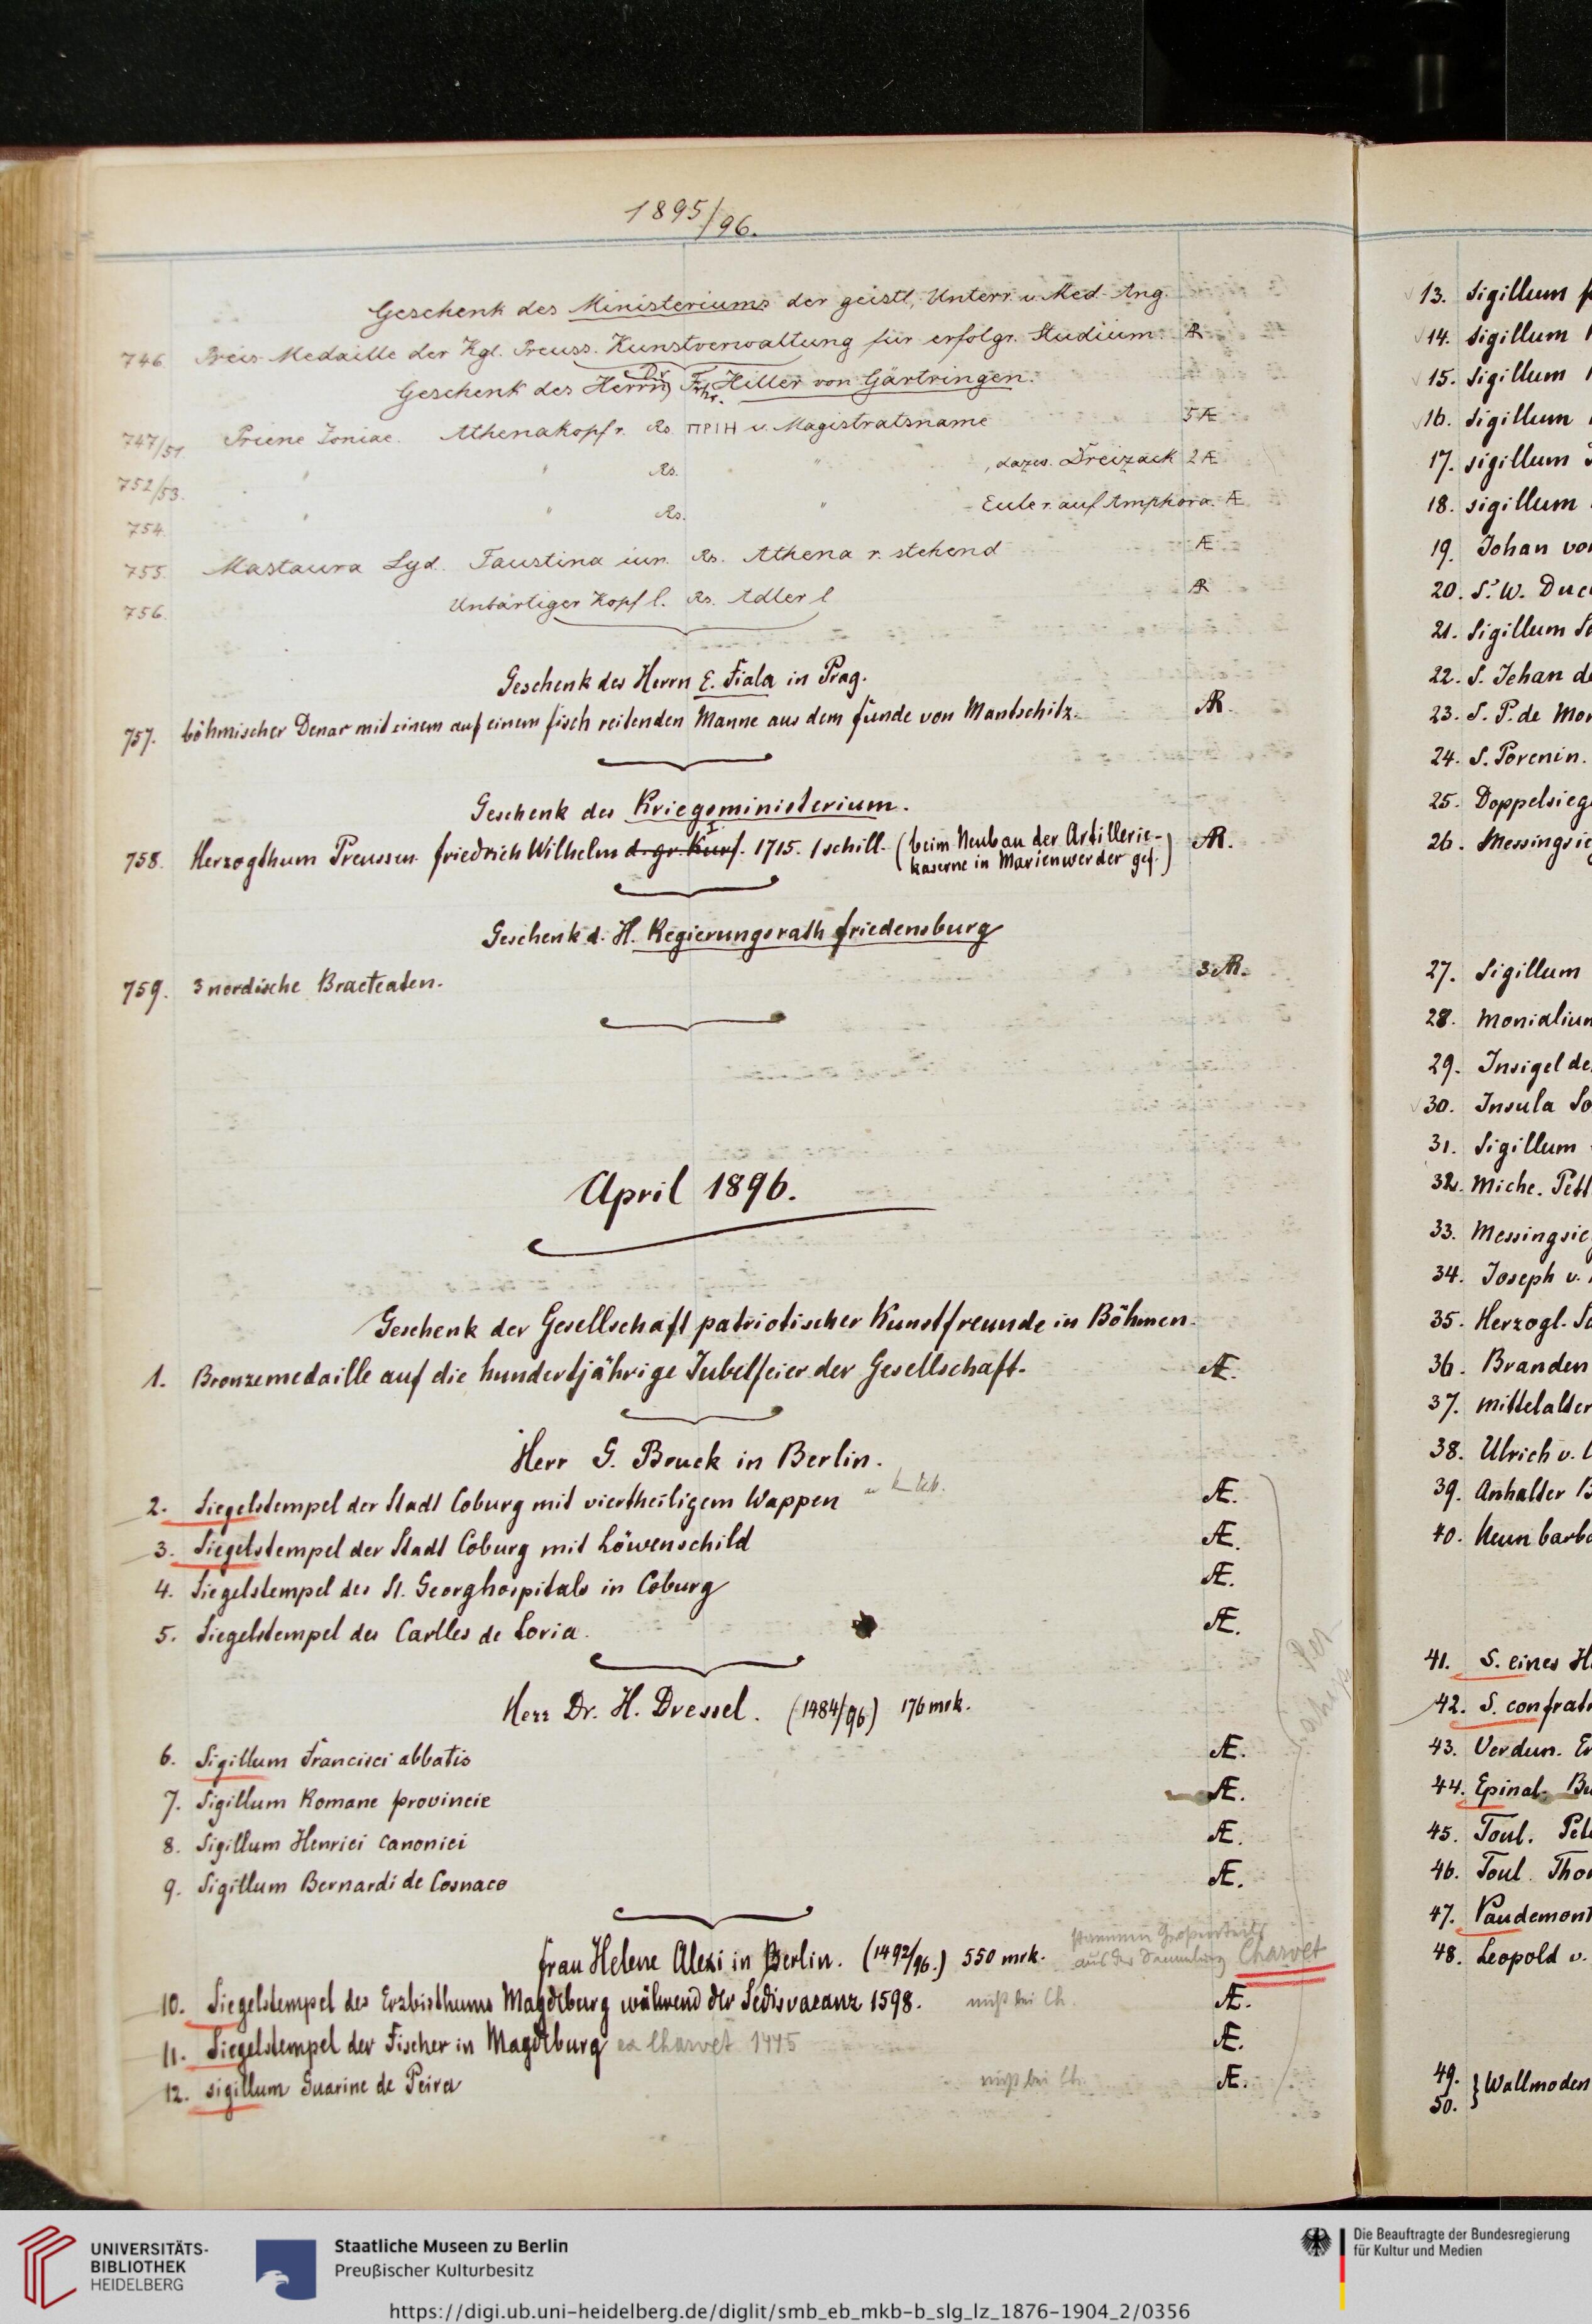 1895/96.
Geschenk des Ministeriums der geistl., Unterr. u. Med. Ang.
746. Preis-Medaille der Kgl. Preuss. Kunstverwaltung für erfolgr. Studium. AR
Geschenk des Herrn Dr. Frhr. Hiller von Gärtringen.
747/51 Priene Ioniae. Athenakopf r. Rs. ΠΡΙΗ u. Magistratsname 5 Æ
752/53. " " Rs. " , dazw. Dreizack 2 Æ
754. " " Rs. " Eule r. auf Amphora. Æ
755. Mastaura Lyd. Faustina iun. Rs. Athena r. stehend Æ
756. Unbärtiger Kopf l. Rs. Adler l AR
Geschenk des Herrn E. Fiala in Prag.
757. böhmischer Denar mit einem auf einem Fisch reitenden Manne aus dem Funde von Mantschitz. AR.
Geschenk des Kriegsministerium.
758. Herzogthum Preussen. Friedrich Wilhelm d. gr. Kurf. I. 1715. 1 schill. (beim Neubau der Artillerie-
kaserne in Marienwerder gef.) AR.
Geschenk d. H. Regierungsrath Friedensburg
759. 3 nordische Bracteaten. 3 AR.
April 1896.
Geschenk der Gesellschaft patriotischer Kunstfreunde in Böhmen.
1. Bronzemedaille auf die hundertjährige Jubelfeier der Gesellschaft. Æ.
Herr G. Bruck in Berlin.
2. Siegelstempel der Stadt Coburg mit viertheiligem Wappen Æ.
3. Siegelstempel der Stadt Coburg mit Löwenschild Æ.
4. Siegelstempel des St. Georghospitals in Coburg Æ.
5. Siegelstempel des Carlles de Loria. Æ.
Herr Dr. H. Dressel. (1484/96) 176 mrk.
6. Sigillum Francisci abbatis Æ.
7. Sigillum Romane provincie Æ.
8. Sigillum Henrici canonici Æ.
9. Sigillum Bernardi de Cosnaco Æ.
Frau Helene Alexi in Berlin. (1492/96.) 550 mrk.
stammen Großentheils
aus der Sammlung Charvet
10. Siegelstempel des Erzbisthums Magdeburg während der Sedisvacanz 1598. nicht bei Ch. Æ.
11. Siegelstempel der Fischer in Magdeburg ex Charvet 1445 Æ.
12. sigillum Guarine de Peira nicht bei Ch. Æ.
13. Sigillum
14. Sigillum
15. Sigillum
16. Sigillum
17. sigillum
18. sigillum
19. Johan
20. S. W.
21. Sigillum
22. S. Jehan
23. S. P. de
24. S. Porenin.
25.
26.
27. Sigillum
28.
29. Insigel
30. Insula
31. Sigillum
32. Miche.
33.
34. Joseph v.
35. Herzogl.
36.
37.
38. Ulrich v.
39. Anhalter
40. Neun
41. S. eines
42. S.
43. Verdun.
44. Epinal.
45. Toul.
46. Toul.
47.
48. Leopold v.
49.
50. } Wallmoden
UNIVERSITÄTS-
BIBLIOTHEK
HEIDELBERG
Staatliche Museen zu Berlin
Preußischer Kulturbesitz
Die Beauftragte der Bundesregierung
für Kultur und Medien
https://digi.ub.uni-heidelberg.de/diglit/smb_eb_mkb-b_slg_lz_1876-1904_2/0356